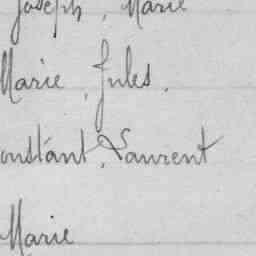 Joseph, Marie
Marie, Jules,
onstant, Laurent
Marie